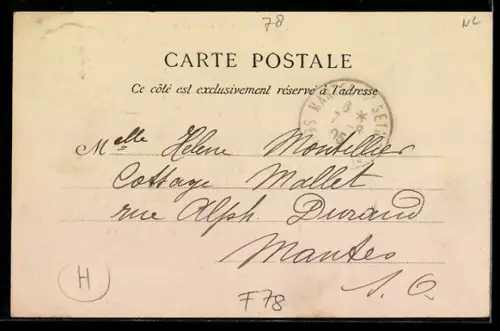 78
NC
CARTE POSTALE
Ce côté est exclusivement réservé à l'adresse
Melle Helene Montellier
Cottage Mallet
rue Alph. Durand
Mantes
S. O.
H
F78